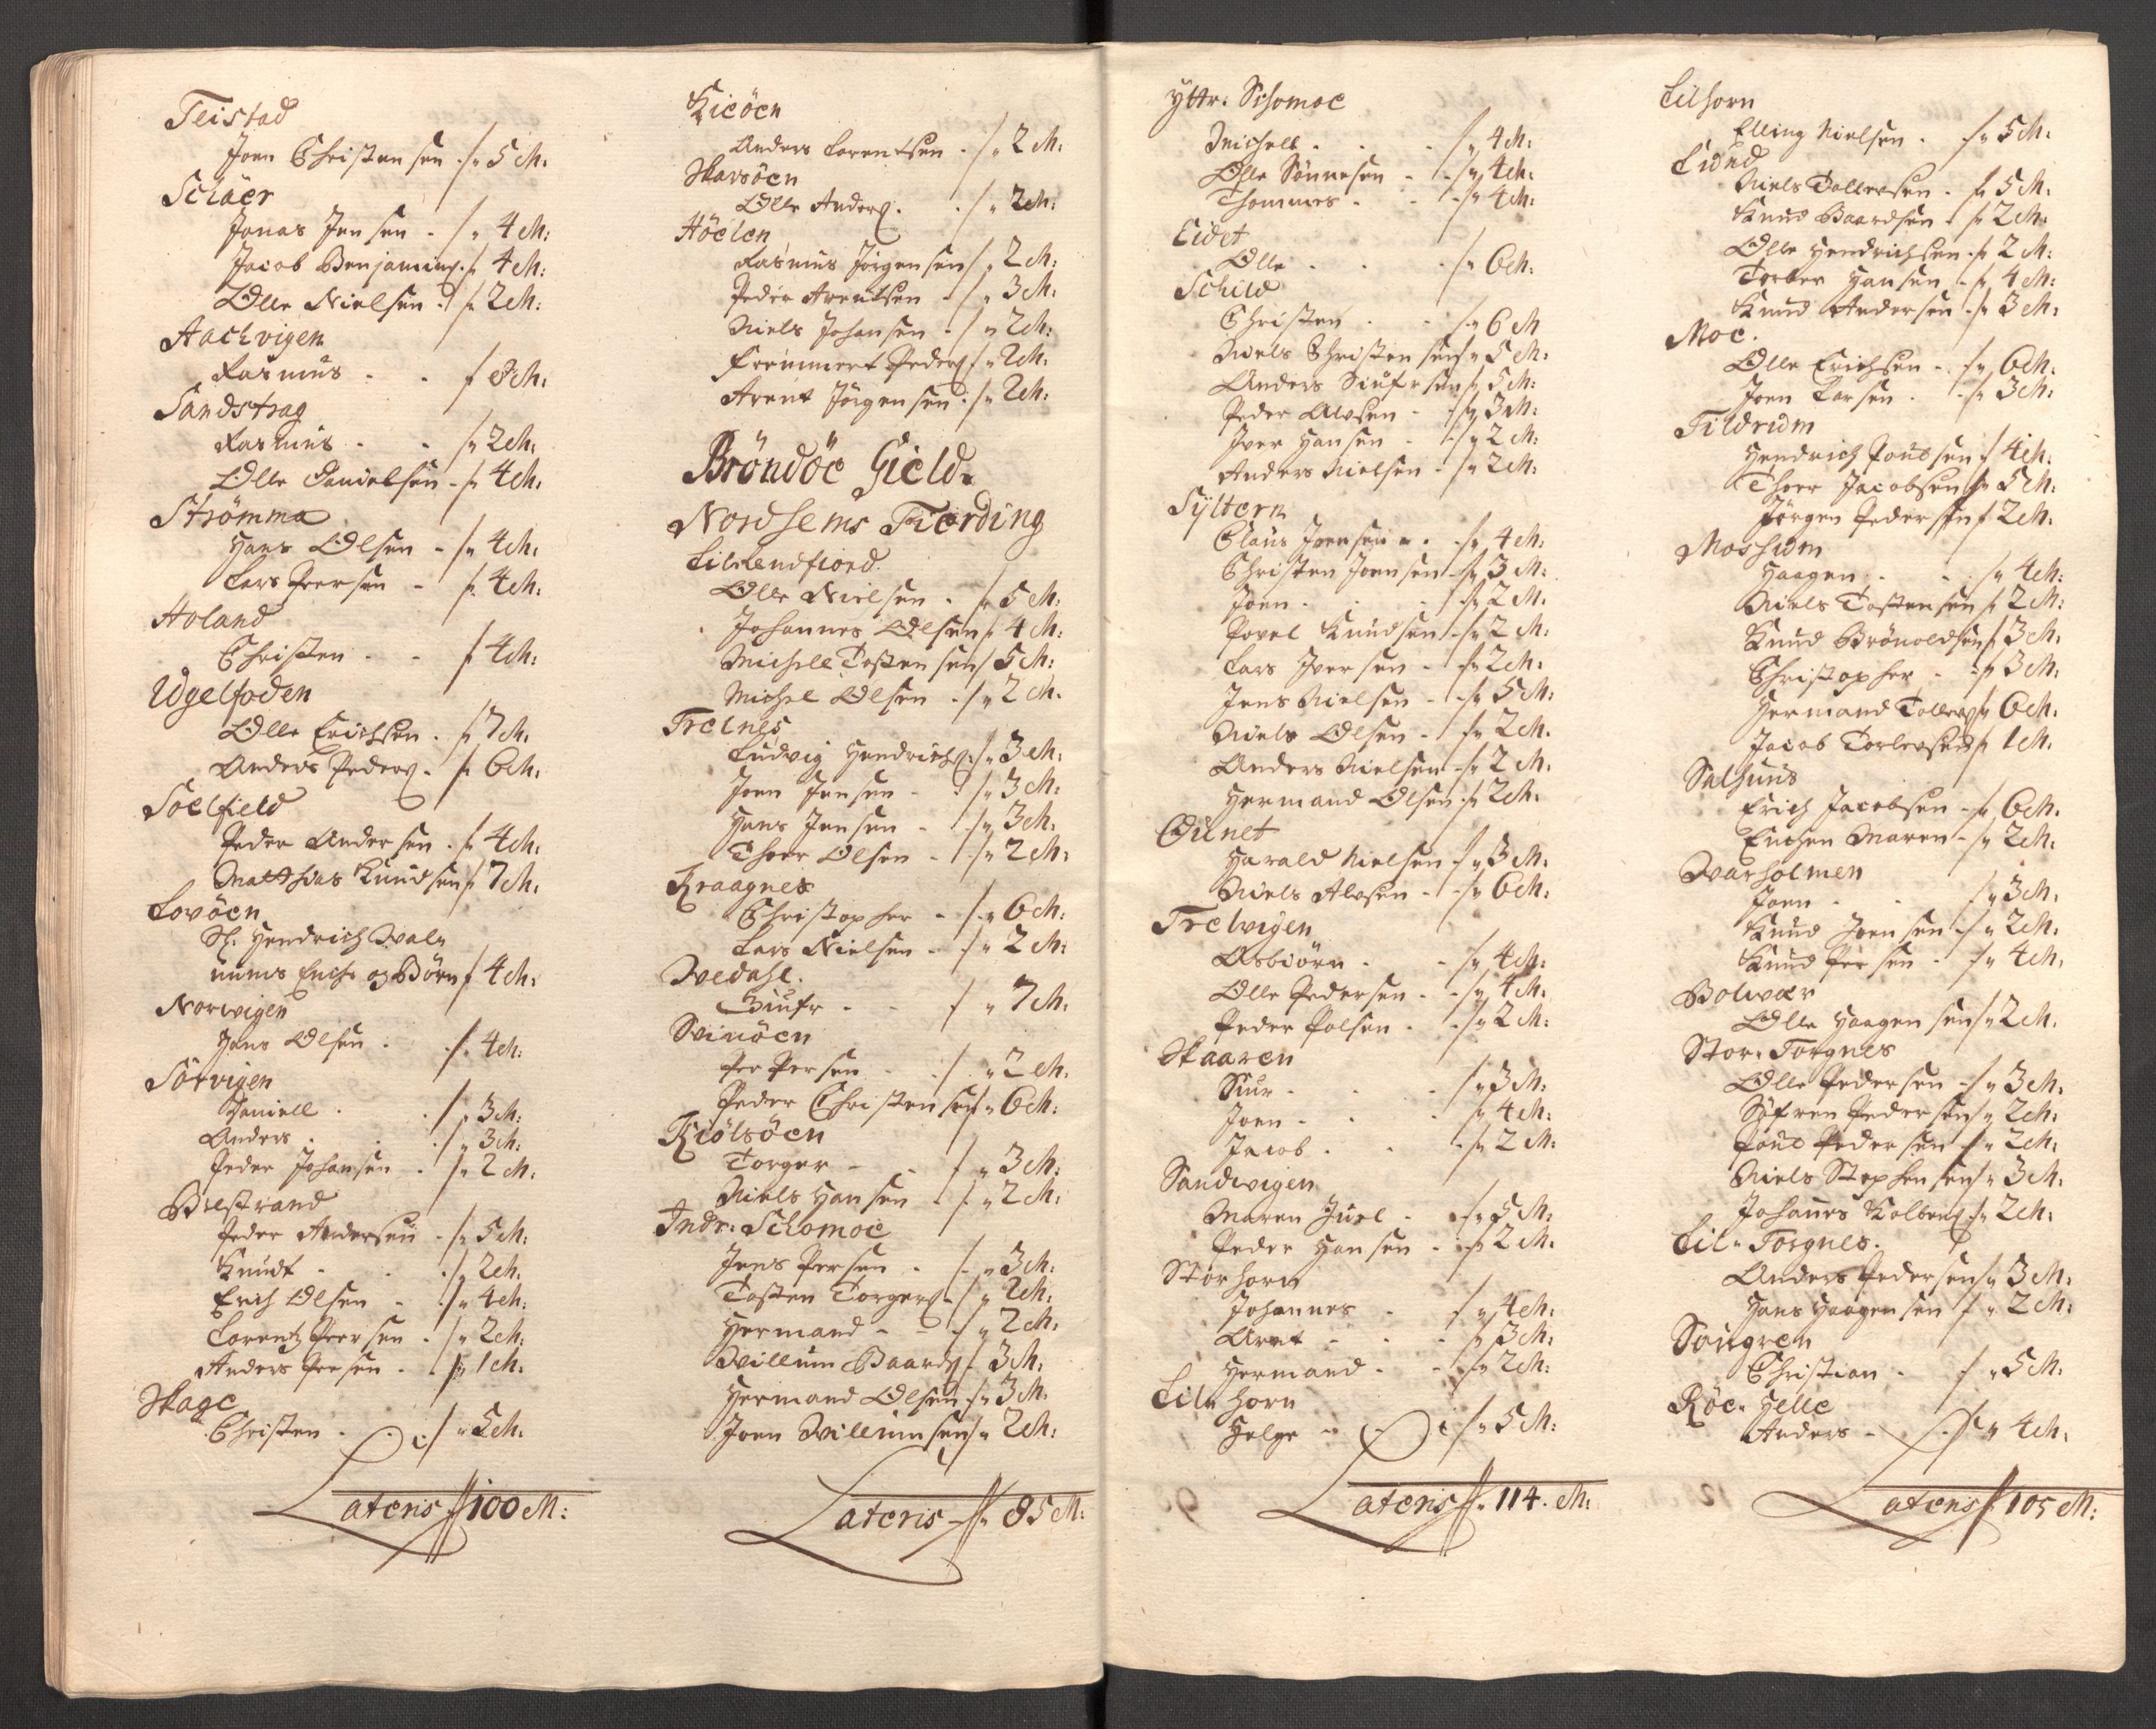 Teistad
Joen Christensen - 5 M:
Schäer
Jonas Jensen - 4 M:
Jacob Benjamins: 4 M:
Olle Nielsen - 2 M:
Aachvigen
Rasmus - - 8 M:
Sandstrag
Rasmus - - 2 M:
Olle Danielsen - 4 M:
Strömma
Hans Olsen - 4 M:
Lars Peersen - 4 M:
Holand
Christen - - 4 M:
Udgelfoden
Olle Erichsen - 7 M:
Anders Peders: - 6 M:
Soelfield
Peder Andersen - 4 M:
Matthias Knudsen 7 M:
Lovöen
Sl: Hendrich Waln
unns Enche og Börn 4 M:
Norvigen
Jens Olsen - 4 M:
Sörvigen
Daniell - - 3 M:
Anders - - 3 M:
Peder Johansen - 2 M:
Brestrand
Peder Andersen - 5 M:
Knudt - - 2 M:
Erich Olsen - 4 M:
Lorentz Peersen - 2 M:
Anders Persen - 1 M:
Skage
Christen - - 5 M:
Lateris 100 M:
Kieöen
Anders Lorentsen - 2 M:
Skarsöen
Olle Anders: - 2 M:
Höelen
Rasmus Jörgensen 2 M:
Peder Arentsen - 3 M:
Niels Johansen - 2 M:
Fremmert Peders: 2 M:
Arent Jörgensen - 2 M:
Bröndöe Gield.
Nordhems Fierding
Lilkendfiord.
Olle Nielsen - 5 M:
Johannes Olsen 4 M:
Michell Tostensen 5 M:
Michel Olsen - 2 M:
Trelnes
Ludvig Hendrichs: 3 M:
Joen Jensen - 3 M:
Hans Jensen - 3 M:
Thoer Olsen - 2 M:
Kraagnes
Christopher - 6 M:
Lars Nielsen - 2 M:
Wedahl.
Siufr - - 7 M:
Svinöen
Per Persen - 2 M:
Peder Christensen 6 M:
Kiölsöen
Torger - - 3 M:
Niels Hansen - 2 M:
Indr: Schomoe
Jens Persen - 3 M:
Tosten Torgers: 2 M:
Hermand - - 2 M:
Willum Baards: 3 M:
Hermand Olsen - 3 M:
Joen Willumsen 2 M:
Lateris - 85 M:
Yttr: Schomoe
Michell - - 4 M:
Olle Sönnesen - 4 M:
Thommes - - 4 M:
Eidet
Olle - - 6 M:
Schild
Christen - - 6 M
Niels Christensen 5 M:
Anders Siufrsen 5 M:
Peder Alvsen - 3 M:
Iver Hansen - 2 M:
Anders Nielsen - 2 M:
Syltern
Claus Joensen - 4 M:
Christen Joensen 3 M:
Joen - - 2 M:
Povel Knudsen - 2 M:
Lars Iversen - 2 M:
Jens Nielsen - 5 M:
Niels Olsen - 2 M:
Anders Nielsen - 2 M:
Hermand Olsen - 2 M:
Ounet
Harald Nielsen - 3 M:
Niels Alvsen - 6 M:
Trelvigen
Asbiörn - - 4 M:
Olle Pedersen - 4 M:
Peder Polsen - 2 M:
Skaaren
Siur - - 3 M:
Joen - - 4 M:
Jacob - - 2 M:
Sandvigen
Maren Juel - 5 M:
Peder Hansen - 2 M:
Storhorn
Johannes - 4 M:
Arnt - - 3 M:
Hermand - - 2 M:
Lil. horn
Helge - - 5 M:
Lateris 114. M:
Lilhorn
Elling Nielsen - 5 M:
Eidnd
Niels Tollevsen - 5 M:
Knud Baardsen - 2 M:
Olle Hendrichsen - 2 M:
Torber Hansen - 4 M:
Knud Andersen - 3 M:
Moe.
Olle Erichsen - 6 M:
Joen Larsen - 3 M:
Tildrum
Hendrich Poulsen 4 M:
Thoer Jacobsen 5 M:
Jörgen Pedersen 2 M:
Mosheim
Haagen - - 4 M:
Niels Tostensen 2 M:
Knud Brönoldsen 3 M:
Christopher - 3 M:
Hermand Tollevs: 6 M:
Jacob Torlevsen 1 M:
Salhuus
Erich Jacobsen - 6 M:
Enchen Maren - 2 M:
Warholmen
Joen - - 3 M:
Knud Joensen - 2 M:
Knud Persen - 4 M:
Bolwær
Olle Haagensen 2 M:
Stor: Torgnes
Olle Pedersen - 3 M:
Söfren Pedersen 2 M:
Poul Pedersen - 2 M:
Niels Stephensen 3 M:
Johannes Kolbens: 2 M:
Lil. Torgnes.
Anders Pedersen 3 M:
Hans Haagensen 2 M:
Sougren
Christian - 5 M:
Röe. Helle
Anders - 4 M:
Lateris 105 M: